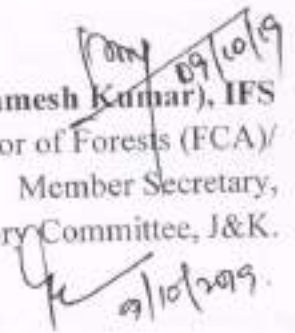 09/10/19
amesh Kumar), IFS
or of Forests (FCA)/
Member Secretary,
ry Committee, J&K.
9/10/2019.